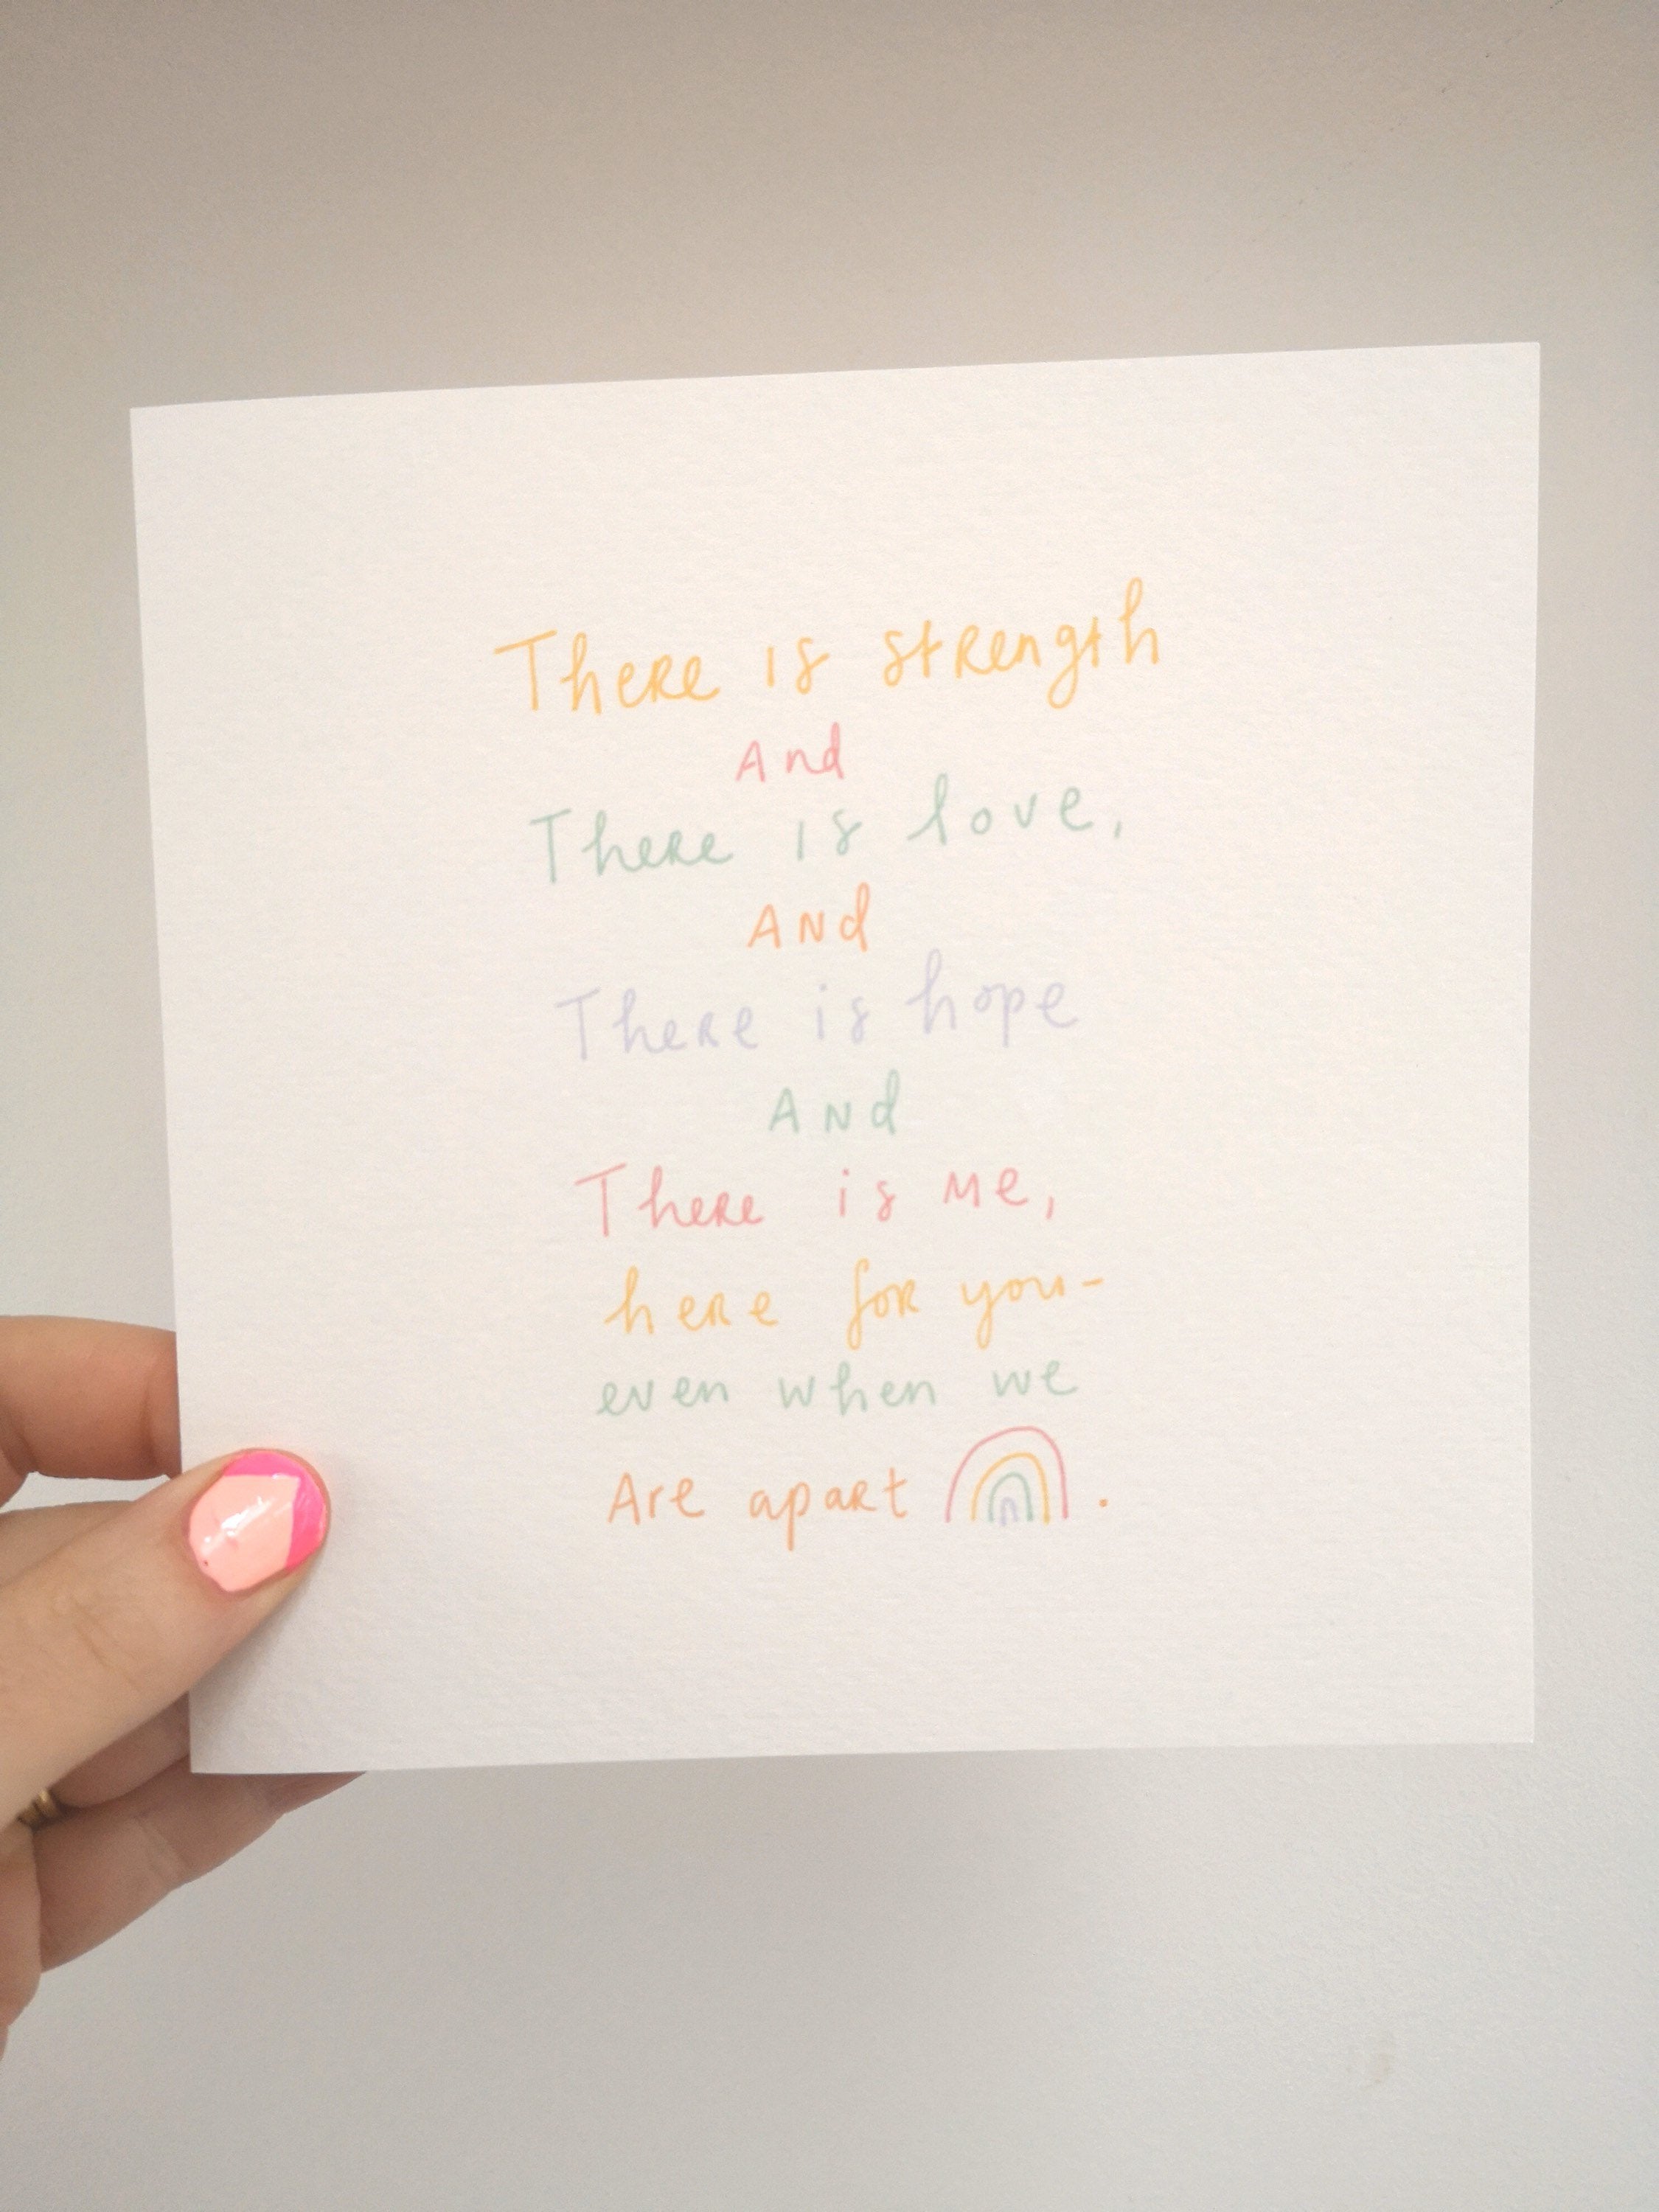 There is strength
And
There is love,
ANd
There is hope
ANd
There is me,
here for you-
even when we
Are apart .